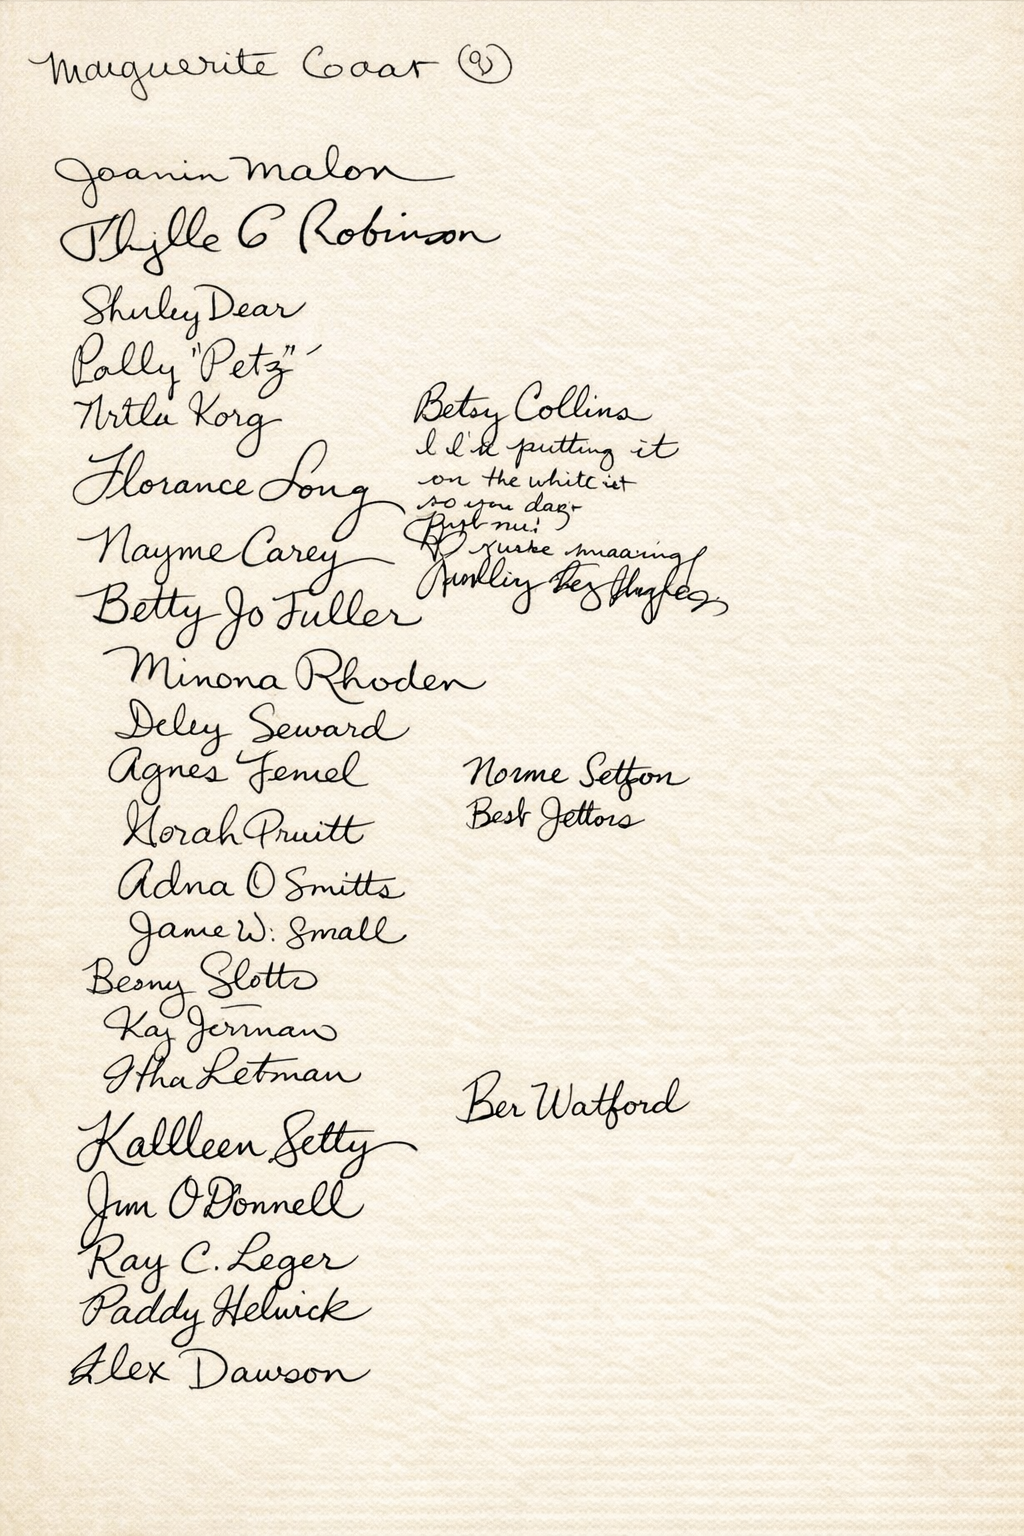 Marguerite Coat
Joanin Malon
Robinson
Shirley Dear
Polly "Petz"
Korg
Florance Long
Nayme Carey
Betty Jo Fuller
Minona Rhoden
Deley Seward
Agnes Femel
Norah Pruitt
Adna O Smitts
Jame W. Small
Besny Slotts
Kay Jerrman
Letman
Kallleen Setty
Jim O'Donnell
Ray C. Leger
Paddy Helwick
Alex Dawson
Betsy Collins
putting it
on the
so you
Norme Setfon
Best Jettors
Ber Watford